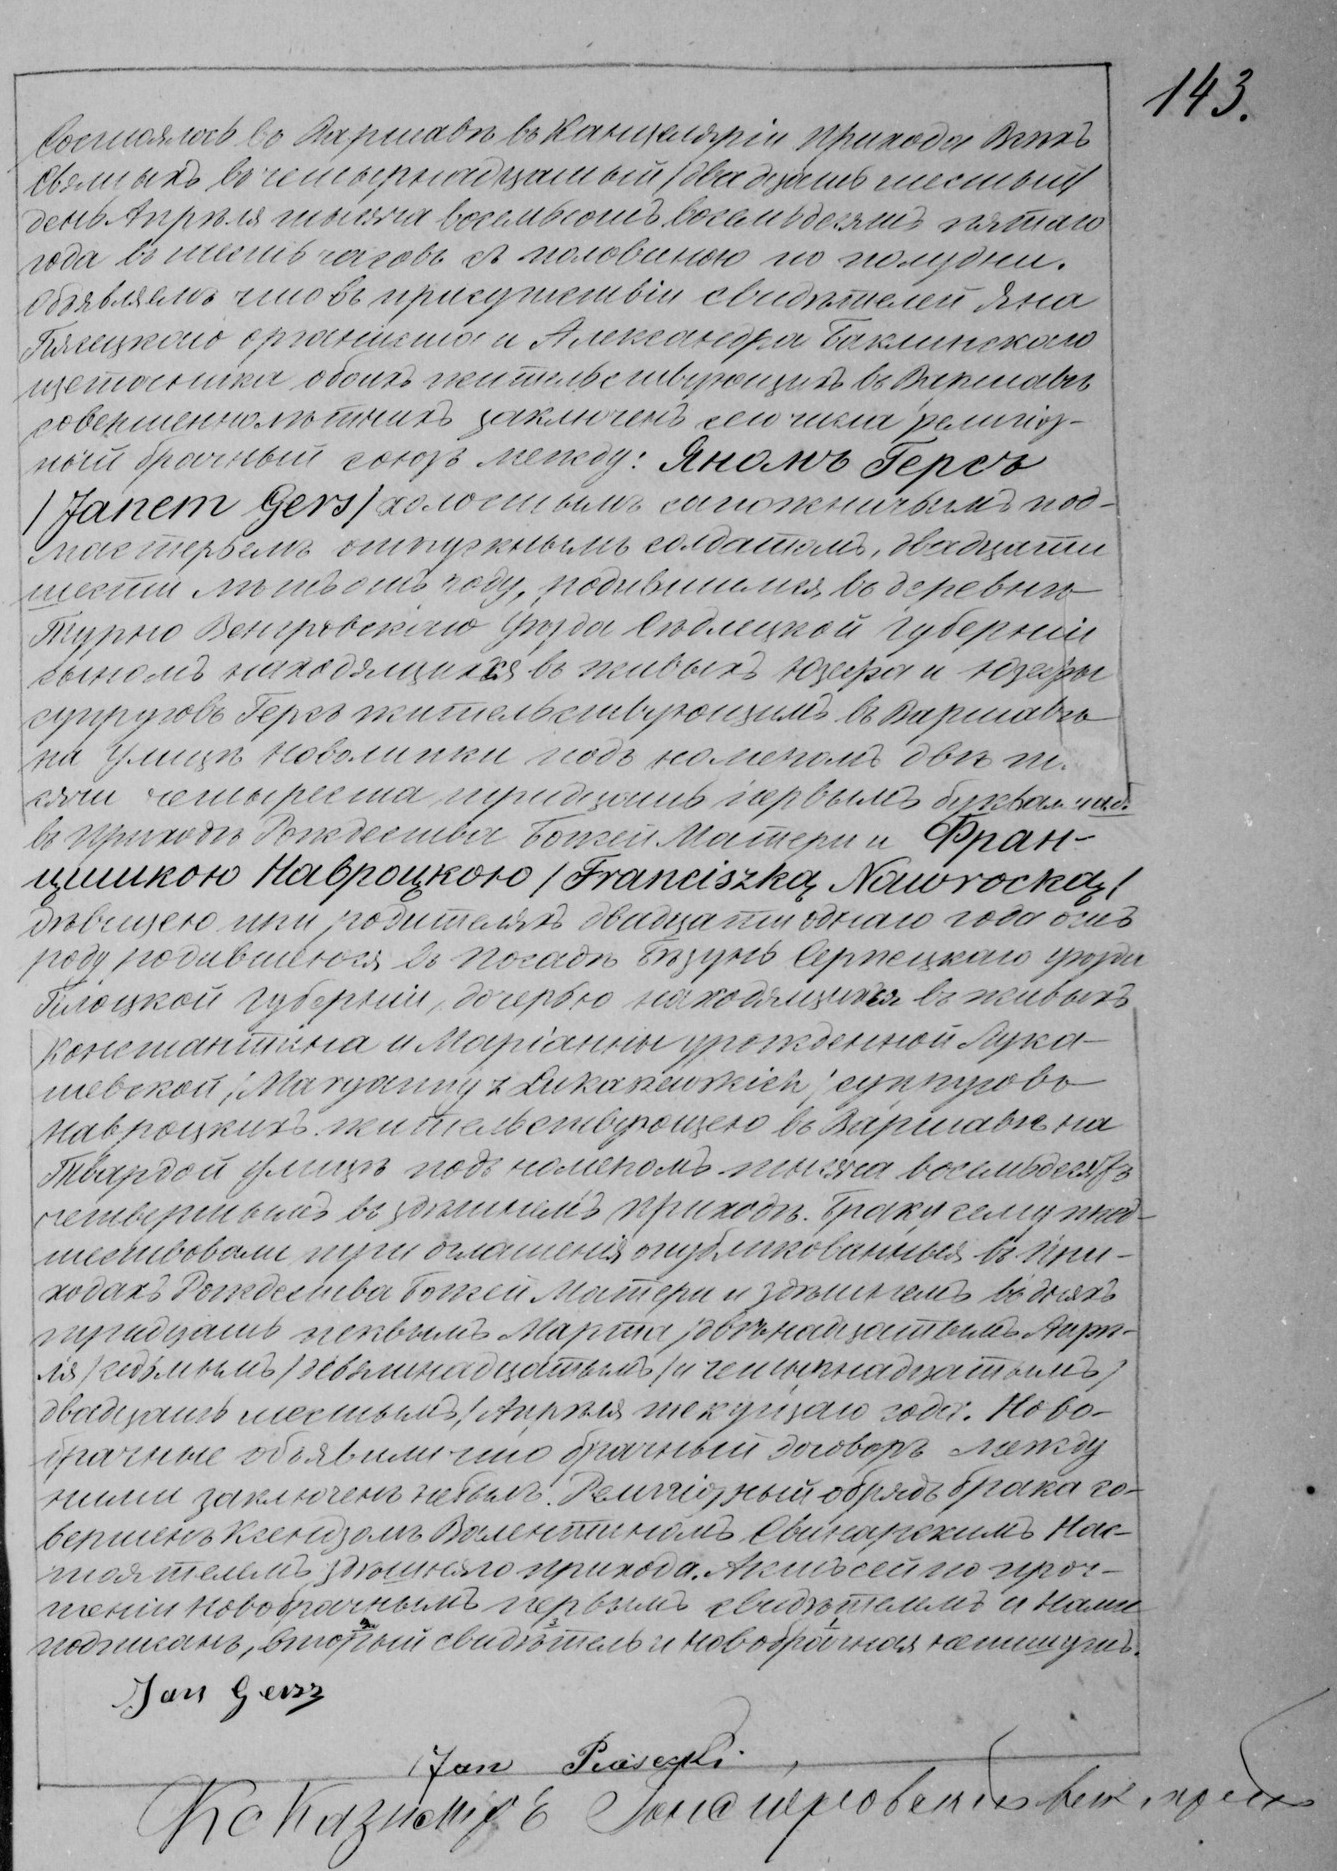 143.
Состоялось въ Варшавѣ въ Канцеляріи Прихода Всѣхъ
Святыхъ въ четырнадцатый /двадцать шестый/
день Апрѣля тысяча восемьсотъ восемьдесятъ пятаго
года въ шесть часовъ съ половиною по полудни.
Объявляемъ что въ присутствіи свидѣтелей Яна
Пясецкаго органиста и Александра Баклинскаго
щеточника обоихъ жительствующихъ въ Варшавѣ
совершеннолѣтнихъ заключенъ сего числа религіоз-
ный брачный союзъ между: Яномъ Герсъ
/Janem Gers/ холостымъ сапожничьимъ под-
мастерьемъ отпускнымъ солдатомъ, двадцати
шести лѣтъ отъ роду, родившимся въ деревнѣ
Турно Венгровскаго Уѣзда Сѣдлецкой Губерніи
сыномъ находящихся въ живыхъ Юзефа и Юзефы
супруговъ Герсъ жительствующимъ въ Варшавѣ
на Улицѣ Новолипки подъ номеромъ двѣ ты-
сячи четыреста тридцать первымъ буквами
въ Приходѣ Рождества Божей Матери и Фран-
цишкою Навроцкою /Franciszką Nawrocką/
дѣвицею при родителяхъ двадцати однаго года отъ
роду родившеюся въ Посадѣ Бѣзунь Серпецкаго уѣзда
Плоцкой Губерніи, дочерью находящихся въ живыхъ
Константина и Маріанны урожденной Лука-
шевской /Maryanny z Łukaszewskich/ супруговъ
Навроцкихъ жительствующею въ Варшавѣ на
Твардой улицѣ подъ номеромъ тысяча восемьдесятъ
четвертымъ въ здѣшнемъ Приходѣ. Браку сему пред-
шествовали три оглашенія опубликованныя въ При-
ходахъ Рождества Божей Матери и здѣшнемъ въ дняхъ
тридцать первымъ Марта /двѣнадцатымъ Апрѣ-
ля/ седьмымъ /девятнадцатымъ/ и четырнадцатымъ/
двадцать шестымъ/ Апрѣля текущаго года. Ново-
брачные объявили что брачный договоръ между
ними заключенъ небылъ. Религіозный обрядъ брака со-
вершенъ Ксендзомъ Валентиномъ Свинарскимъ Нас-
тоятелемъ здѣшняго прихода. Актъ сей по проч-
теніи Новобрачнымъ первымъ свидѣтелемъ и Нами
подписанъ, вторый свидѣтель и новобрачная непишутъ.
Jan Gersz
Jan Piasecki
Кс Казимиръ